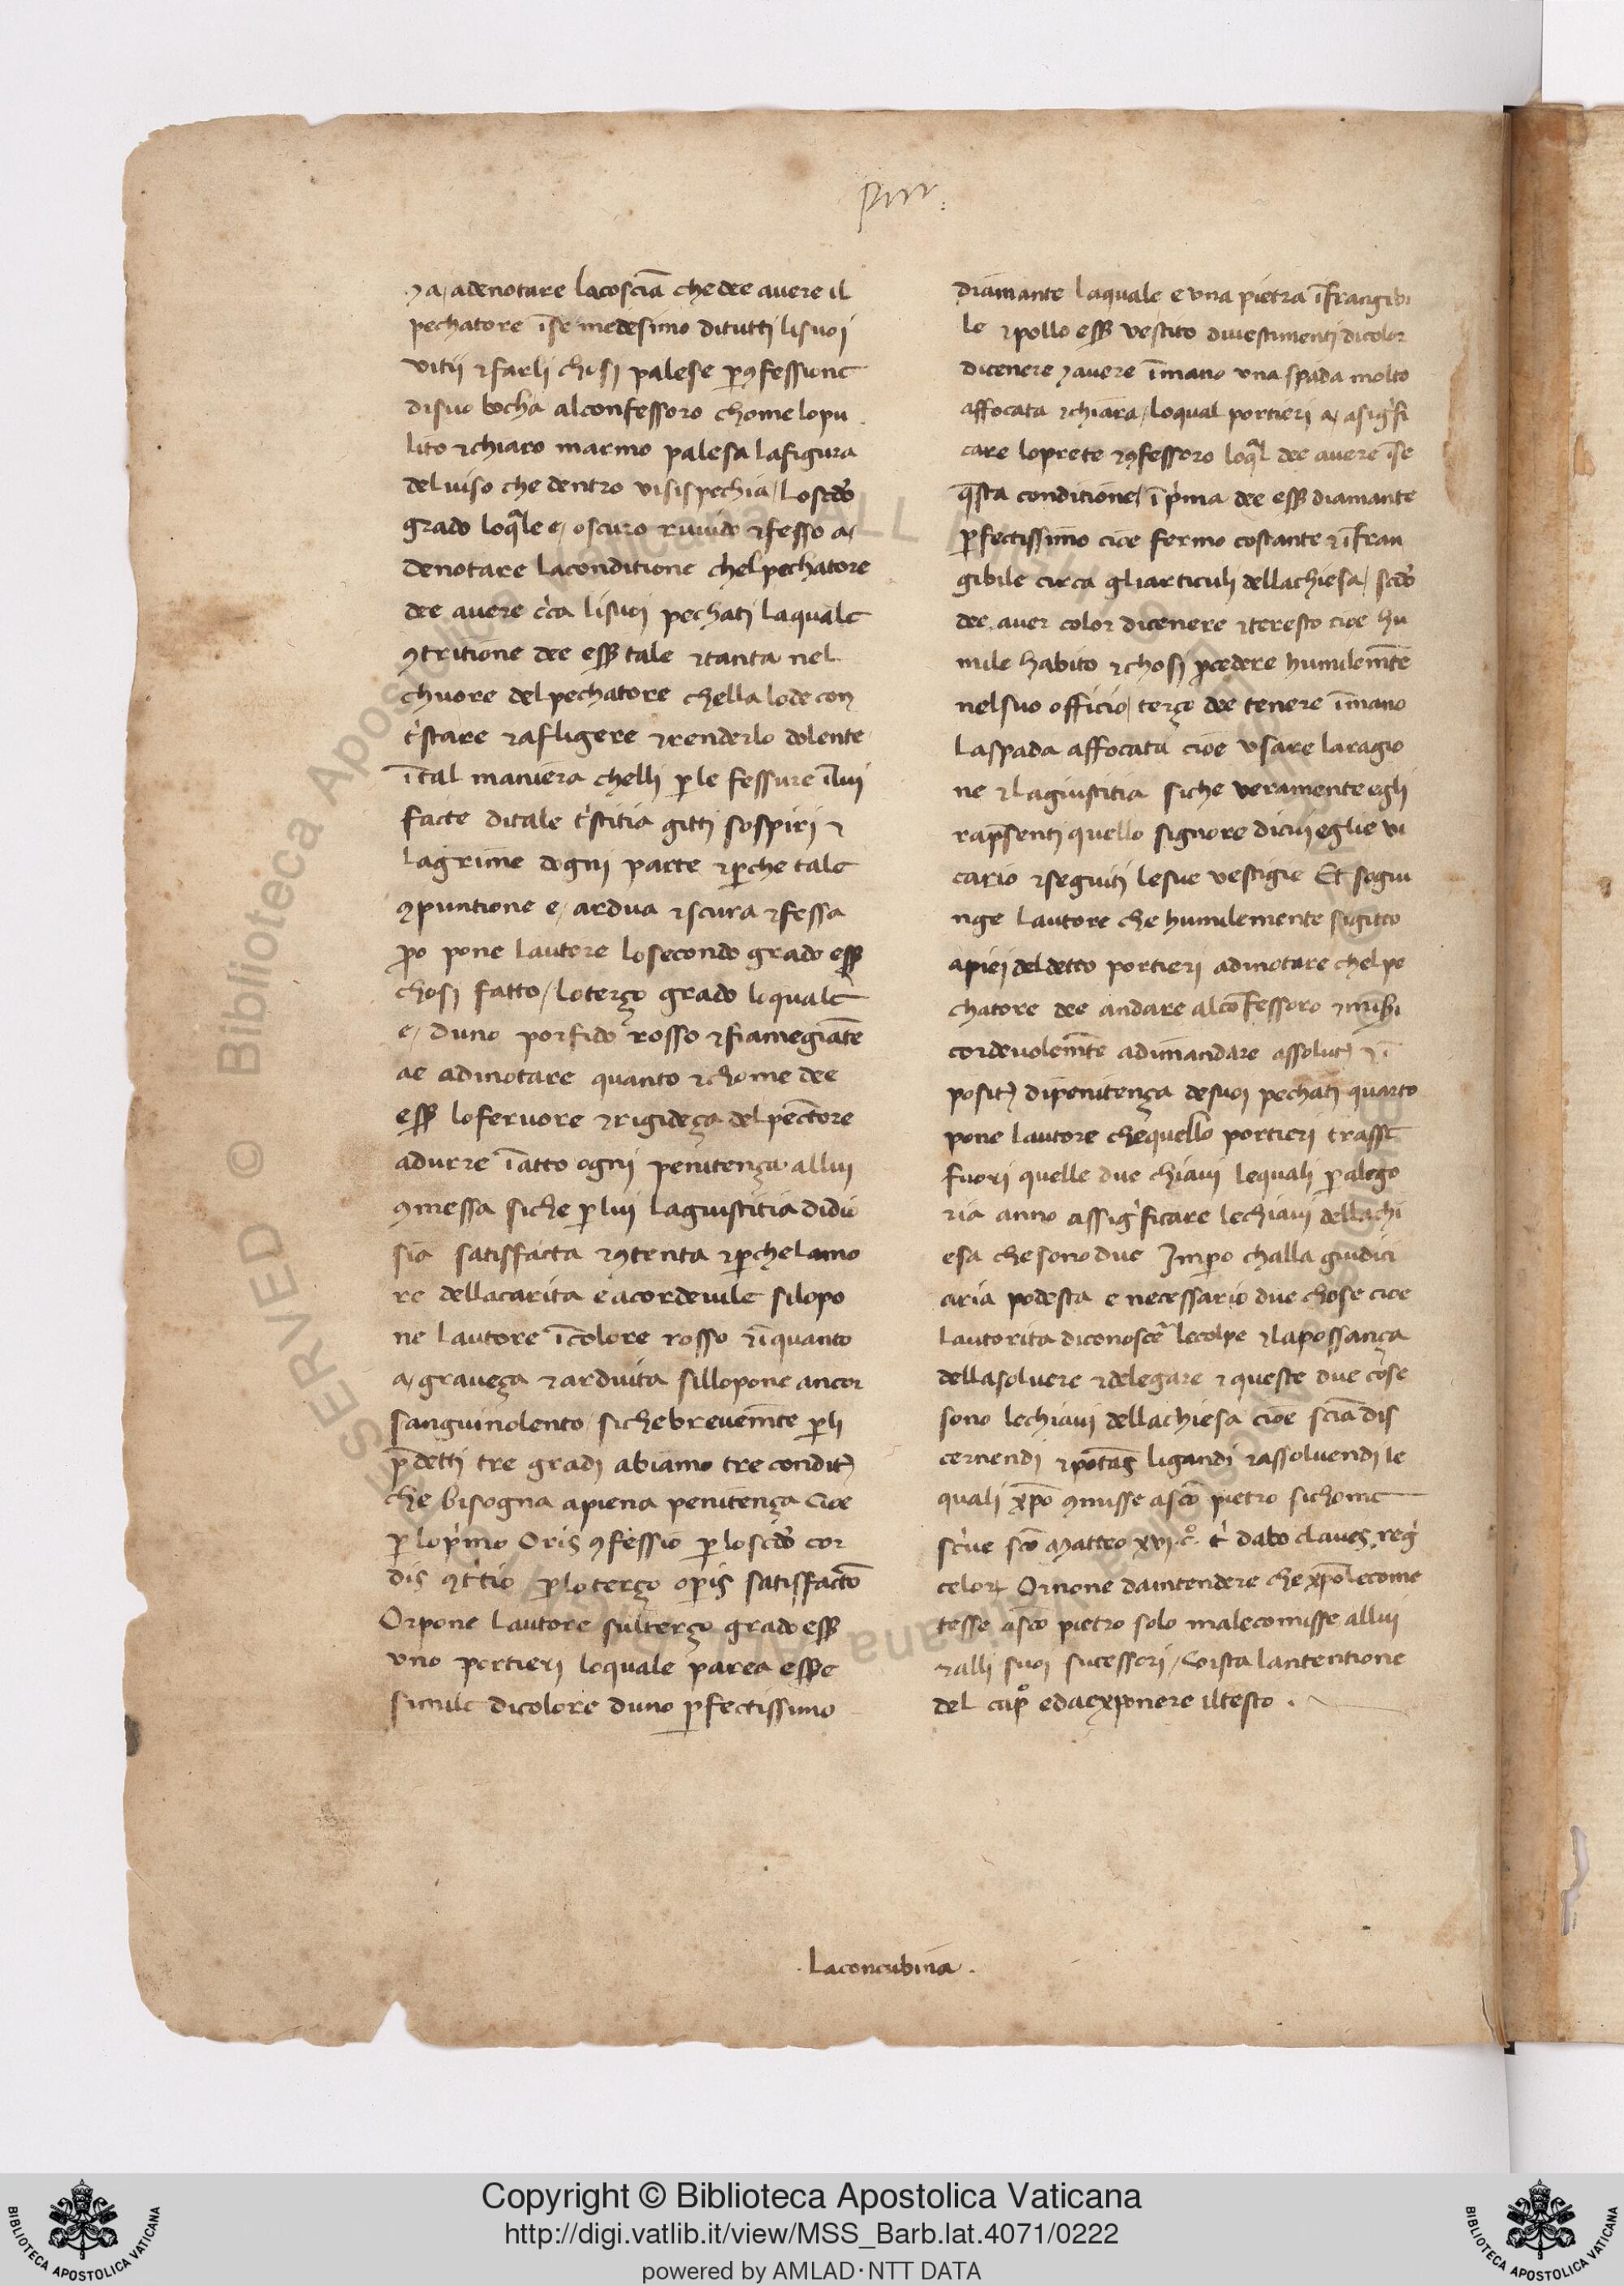 ⁊ a / adenotare lacosciā che dee auere il
pechatore ī se medesimo di tutti li suoi
vitii ⁊ farli chosi palese p ꝯfessione
di suo bocha al confessoro chome lo pu
lito ⁊ chiaro marmo palesa la figura
del uiso che dentro vi si spechia / Lo scdo
grado loqle e / oscuro ruuido ⁊ fesso a /
denotare la conditione chel pechatore
dee avere cca li suoi pechati la quale
ꝯtritione dee ess tale ⁊ tanta nel
chuore del pechatore chella lo de con
tstare ⁊ afligere ⁊ renderlo dolente
ī tal maniera chelli ꝑ le fessure ī lui
facte di tale tstitia gitti sospiri ⁊
lagrime dogni parte ⁊ ꝑche tale
ꝯpuntione e / ardua ⁊ scura ⁊ fessa
ꝑo pone lautore lo secondo grado ess
chosi fatto / lo terço grado lo quale
e / duno porfido rosso ⁊ fiamegiāte
ae adinotare quanto ⁊ chome dee
ess lo feruore ⁊ rigideça del pectore
adurre ī atto ogni penitença allui
ꝯmessa siche ꝑ lui la giustitia di dio
sia satisfacta ⁊ ꝯtenta ⁊ ꝑche lamo
re della carita e acordeuile si lo po
ne lautore ī colore rosso ⁊ ī quanto
a / graueça ⁊ arduita sillo pone ancor
sanguinolento / siche breuemte ꝑ li
p̄detti tre gradi abiamo tre condit
che bisogna a piena penitença cioe
ꝑ lo pmo Oris ꝯfessio ꝑ lo scdo cor
dis ꝯttio ꝑ lo terço opis satisfacto
Or pone lautore sul terço grado ess
vno portieri lo quale parea esse
simile di colore duno ꝑfectissimo
diamante la quale e vna pietra īfrangibi
le ⁊ pollo ess vestito di uestimenti di color
di cenere ⁊ auere ī mano vna spada molto
affocata ⁊ chiara / lo qual portieri a / a sigfi
care lo prete ⁊ ꝯfessoro loql dee auere ī se
qsta conditione / ī pma dee ess diamante
ꝑfectissimo cioe fermo costante ⁊ īfran
gibile circa gli articuli della chiesa / scdo
dee auer color di cenere ⁊ teresto cioe hu
mile habito ⁊ chosi ꝓcedere humilemte
nel suo officio / terço dee tenere ī mano
la spada affocata cioe vsare la ragio
ne ⁊ la giustitia siche veramente egli
rapsenti quello signore di cui eglie vi
cario ⁊ seguiti le sue vestigie Et sogiu
nge lautore che humilemente si gitto
a piei del detto portieri adinotare chel pe
chatore dee andare al cōfessoro ⁊
cordeuolemte adimandare assolut ⁊ ī
posit di penitença de suoi pechati quarto
pone lautore che quello portieri trasse
fuori quelle due chiaui le quali ꝑ alego
ria anno assigficare le chiaui della chi
esa che sono due Impo challa giudici
aria podesta e necessario due chose cioe
lautorita di conoscē le colpe ⁊ la possança
dellasoluere ⁊ de legare ⁊ queste due chose
sono le chiaui della chiesa cioe sciā dis
cernendi ⁊ potās ligandi ⁊ assoluendi le
quali xpo ꝯmisse a sco pietro sichome
scue sco Matteo xvi co tⁱ dabo claues reg
celoꝝ Or none da intendere che xpo le come
tesse a sco pietro solo ma le comisse allui
⁊ alli suoi sucessori / Coi sta lantentione
del capo e da exponere il testo .
. La concubina .